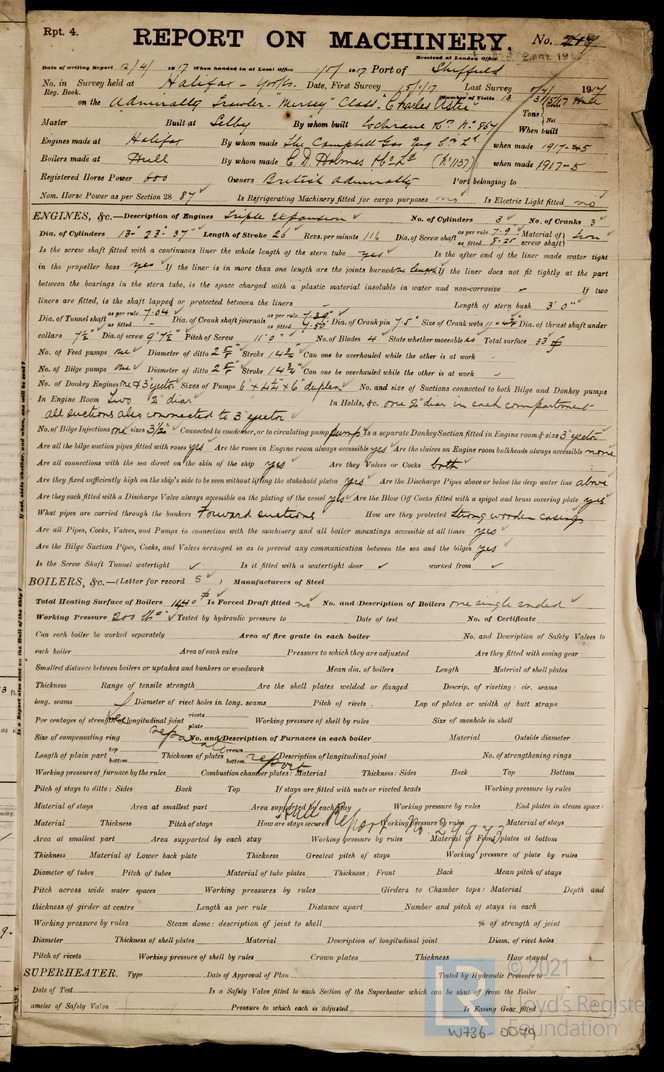 Rpt. 4.
REPORT ON MACHINERY. No. 217
Received at London Office
Date of writing Report 12/4/1917 When handed in at Local Office 1/5/1917 Port of Sheffield
No. in Survey held at Halifax - Yorks. Date, First Survey Last Survey 1917
Reg. Book. Number of Visits 13
on the Admiralty Trawler - Mersey Class. "Charles Astie" Tons Net
Master Built at Selby By whom built Cochrane When built
Engines made at Halifax By whom made The Campbell Gas Eng Co. Ld when made 1917-5
Boilers made at Hull By whom made C. D. Holmes & Co. Ld (No 1137) when made 1917-5
Registered Horse Power 600 Owners British Admiralty Port belonging to
Nom. Horse Power as per Section 28 87 Is Refrigerating Machinery fitted for cargo purposes no Is Electric Light fitted no
ENGINES, &c.—Description of Engines Triple Expansion No. of Cylinders 3 No. of Cranks 3
Dia. of Cylinders 13"-23"-37" Length of Stroke 26 Revs. per minute 116 Dia. of Screw shaft as per rule 7.9 as fitted 8.25 Material of screw shaft Iron
Is the screw shaft fitted with a continuous liner the whole length of the stern tube yes Is the after end of the liner made water tight
in the propeller boss yes If the liner is in more than one length are the joints burned one length If the liner does not fit tightly at the part
between the bearings in the stern tube, is the space charged with a plastic material insoluble in water and non-corrosive If two
liners are fitted, is the shaft lapped or protected between the liners Length of stern bush 3' 0"
Dia. of Tunnel shaft as per rule 7.04 as fitted Dia. of Crank shaft journals as per rule 7.39" as fitted Dia. of Crank pin 7.5" Size of Crank webs Dia. of thrust shaft under
collars 7½" Dia. of screw 9' 7½" Pitch of Screw 11' 0" No. of Blades 4 State whether moveable no Total surface 33
No. of Feed pumps one Diameter of ditto Stroke Can one be overhauled while the other is at work
No. of Bilge pumps one Diameter of ditto Stroke Can one be overhauled while the other is at work
No. of Donkey Engines one & 3" ejector Sizes of Pumps 6" x 4¼" x 6" duplex No. and size of Suctions connected to both Bilge and Donkey pumps
In Engine Room two 2" diar In Holds, &c. one 2" diar in each compartment
all suctions also connected to 3" ejector
No. of Bilge Injections one sizes 3½" Connected to condenser, or to circulating pump pump Is a separate Donkey Suction fitted in Engine room & size 3" ejector
Are all the bilge suction pipes fitted with roses yes Are the roses in Engine room always accessible yes Are the sluices on Engine room bulkheads always accessible none
Are all connections with the sea direct on the skin of the ship yes Are they Valves or Cocks both
Are they fixed sufficiently high on the ship's side to be seen without lifting the stokehold plates yes Are the Discharge Pipes above or below the deep water line above
Are they each fitted with a Discharge Valve always accessible on the plating of the vessel yes Are the Blow Off Cocks fitted with a spigot and brass covering plate yes
What pipes are carried through the bunkers Forward suctions How are they protected Strong wooden casings
Are all Pipes, Cocks, Valves, and Pumps in connection with the machinery and all boiler mountings accessible at all times yes
Are the Bilge Suction Pipes, Cocks, and Valves arranged so as to prevent any communication between the sea and the bilges yes
Is the Screw Shaft Tunnel watertight Is it fitted with a watertight door worked from
BOILERS, &c.—(Letter for record S) Manufacturers of Steel
Total Heating Surface of Boilers 1440 Is Forced Draft fitted no No. and Description of Boilers one single ended
Working Pressure 200 lb Tested by hydraulic pressure to Date of test No. of Certificate
Can each boiler be worked separately Area of fire grate in each boiler No. and Description of Safety Valves to
each boiler Area of each valve Pressure to which they are adjusted Are they fitted with easing gear
Smallest distance between boilers or uptakes and bunkers or woodwork Mean dia. of boilers Length Material of shell plates
Thickness Range of tensile strength Are the shell plates welded or flanged Descrip. of riveting: cir. seams
long. seams Diameter of rivet holes in long. seams Pitch of rivets Lap of plates or width of butt straps
Per centages of strength of longitudinal joint rivets plate Working pressure of shell by rules Size of manhole in shell
Size of compensating ring No. and Description of Furnaces in each boiler Material Outside diameter
Length of plain part top bottom Thickness of plates crown bottom Description of longitudinal joint No. of strengthening rings
See separate report
Working pressure of furnace by the rules Combustion chamber plates: Material Thickness: Sides Back Top Bottom
Pitch of stays to ditto: Sides Back Top If stays are fitted with nuts or riveted heads Working pressure by rules
Material of stays Area at smallest part Area supported by each stay Working pressure by rules End plates in steam space:
Hull Report No 29973
Material Thickness Pitch of stays How are stays secured Working Pressure by rules Material of stays
Area at smallest part Area supported by each stay Working pressure by rules Material of Front plates at bottom
Thickness Material of Lower back plate Thickness Greatest pitch of stays Working pressure of plate by rules
Diameter of tubes Pitch of tubes Material of tube plates Thickness: Front Back Mean pitch of stays
Pitch across wide water spaces Working pressures by rules Girders to Chamber tops: Material Depth and
thickness of girder at centre Length as per rule Distance apart Number and pitch of stays in each
Working pressure by rules Steam dome: description of joint to shell % of strength of joint
Diameter Thickness of shell plates Material Description of longitudinal joint Diam. of rivet holes
Pitch of rivets Working pressure of shell by rules Crown plates Thickness How stayed
SUPERHEATER. Type Date of Approval of Plan Tested by Hydraulic Pressure to
Date of Test Is a Safety Valve fitted to each Section of the Superheater which can be shut off from the Boiler
ameter of Safety Valve Pressure to which each is adjusted Is Easing Gear fitted
© 2021
Lloyd's Register
Foundation
W736 0099